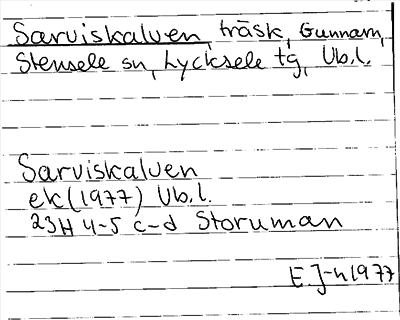 Sarviskalven, träsk, Gunnarn,
Stensele sn, Lycksele tg, Vb.l.
Sarviskalven
ek (1977) Vb.l.
23H 4-5 c-d Storuman
E.J-n 1977